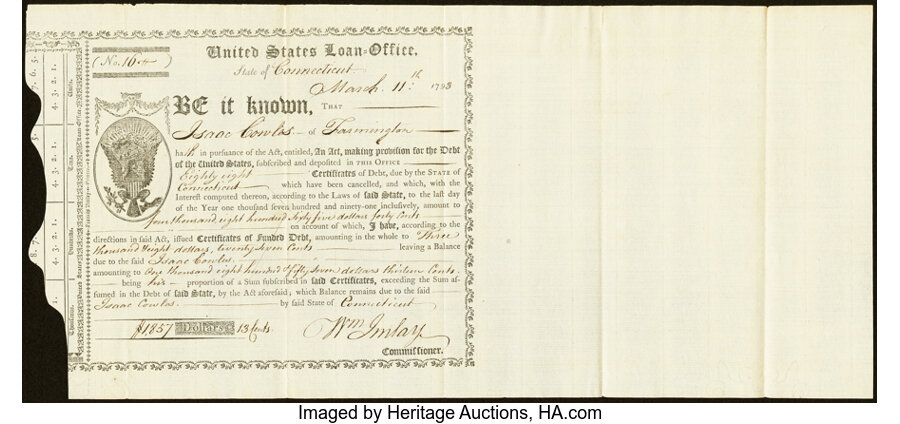 United States Loan-Office.
(No. 164)
State of Connecticut
March 11th 1793
BE it known, THAT
Isaac Cowles of Farmington
hath in pursuance of the Act, entitled, An Act, making provision for the Debt
of the United States, subscribed and deposited in THIS OFFICE
Eighty eight Certificates of Debt, due by the STATE OF
Connecticut which have been cancelled, and which, with the
Interest computed thereon, according to the Laws of said State, to the last day
of the Year one thousand seven hundred and ninety-one inclusively, amount to
four thousand eight hundred sixty five dollars forty Cents
on account of which, I have, according to the
directions in said Act, issued Certificates of Funded Debt, amounting in the whole to Three
thousand & eight dollars, twenty Seven Cents leaving a Balance
due to the said Isaac Cowles.
amounting to One thousand eight hundred fifty Seven dollars thirteen Cents.
being his proportion of a Sum subscribed in said Certificates, exceeding the Sum as-
sumed in the Debt of said State, by the Act aforesaid; which Balance remains due to the said
Isaac Cowles. by said State of Connecticut
$1857 Dollars 13 Cents.
Wm Imlay
Commissioner.
8. 7. 6. 5.
4. 3. 2. 1.
Units.
5.
4. 3. 2. 1.
Tens.
4. 3. 2. 1.
Hundreds.
8. 7.
1.
Thousands.
Imaged by Heritage Auctions, HA.com